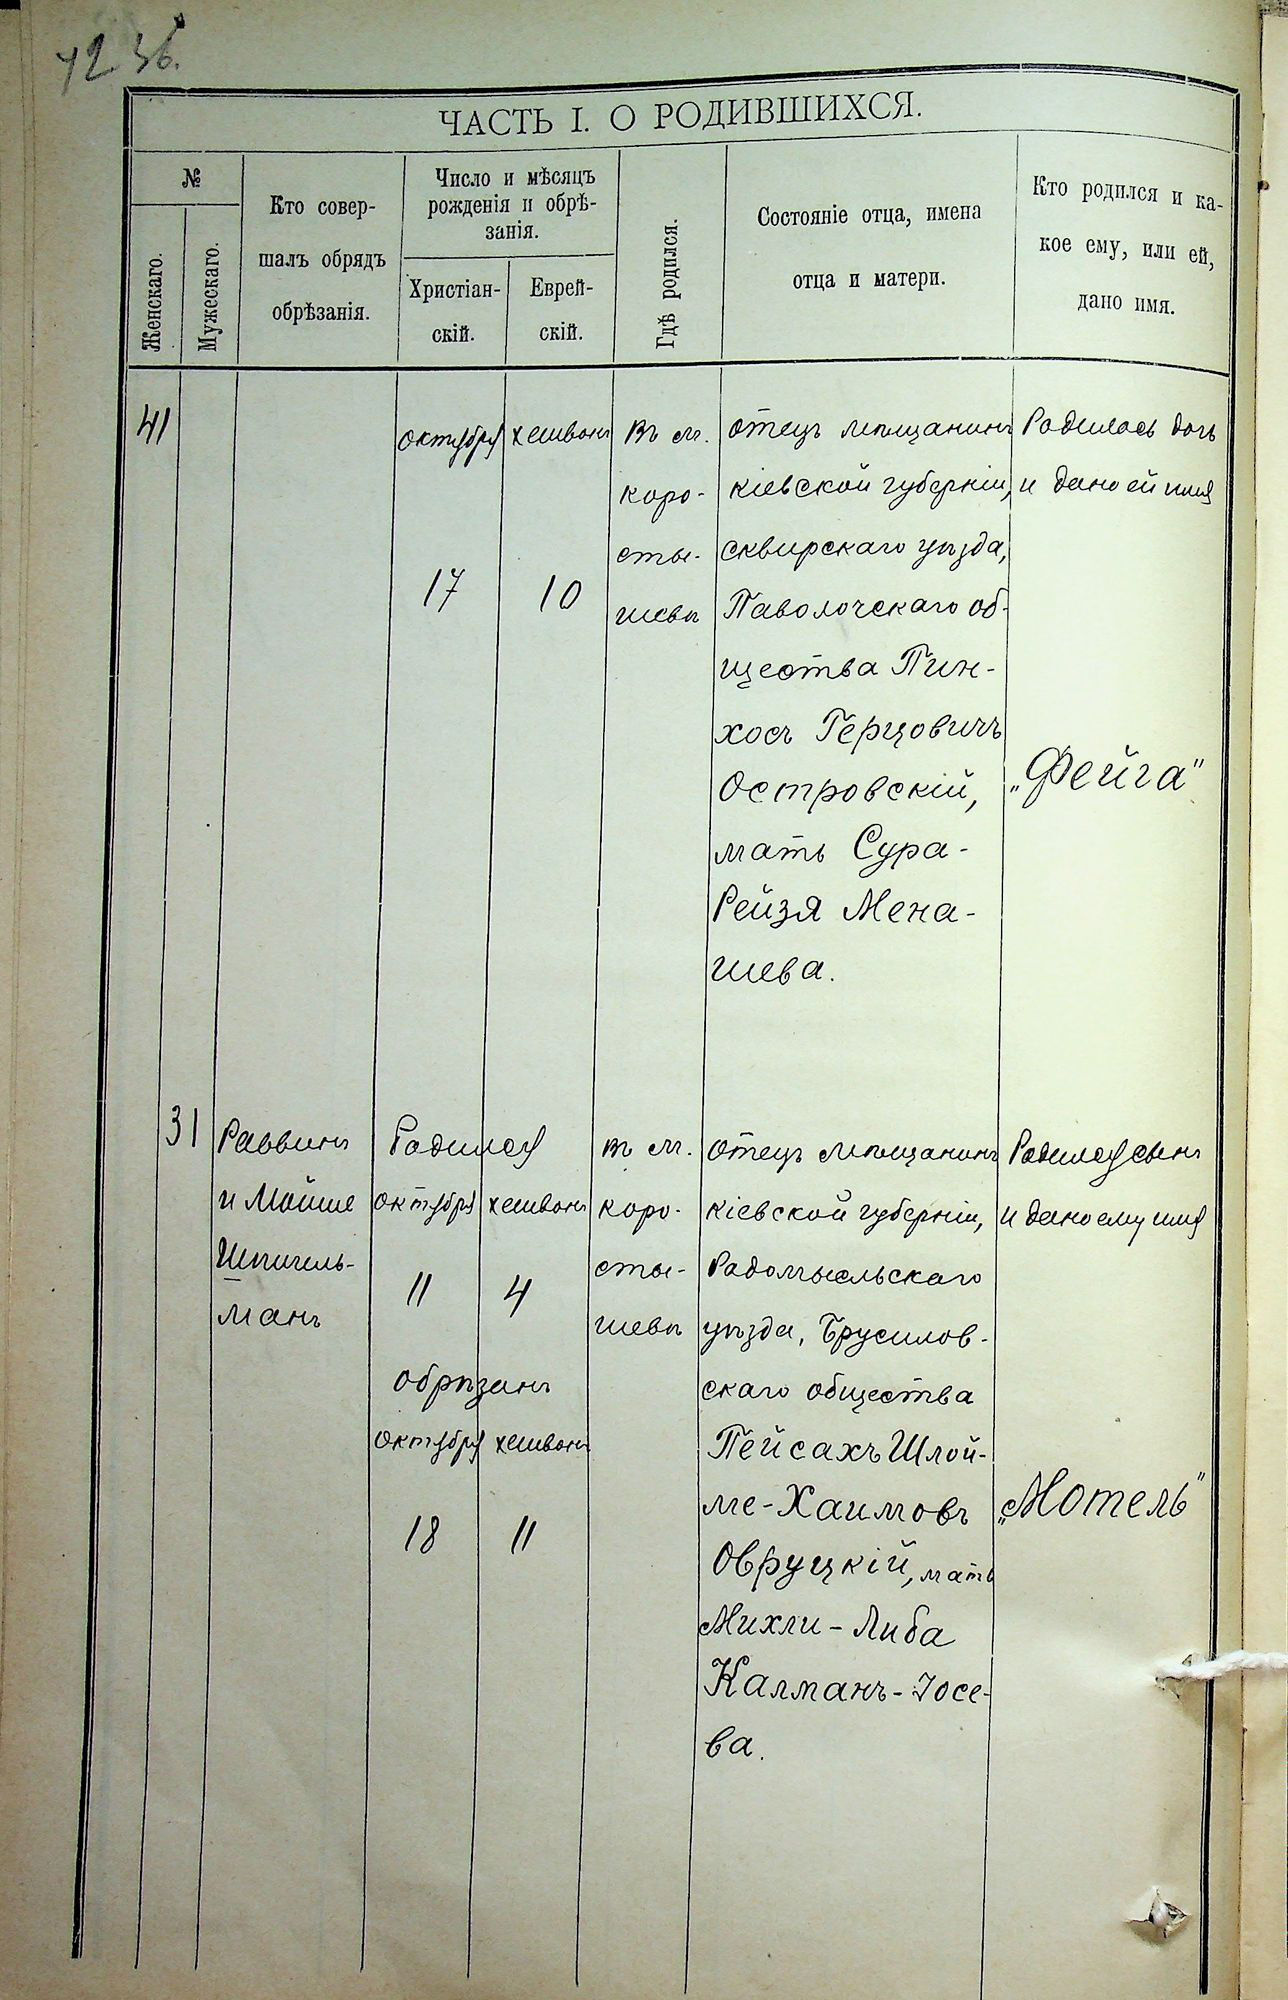 42 36.
ЧАСТЬ I. О РОДИВШИХСЯ.
№
Женскаго.
Мужескаго.
Кто совер-
шалъ обрядъ
обрѣзанія.
Число и мѣсяцъ
рожденія и обрѣ-
занія.
Христіан-
скій.
Еврей-
скій.
Гдѣ родился.
Состояніе отца, имена
отца и матери.
Кто родился и ка-
кое ему, или ей,
дано имя.
41
октября
17
хешвонъ
10
Въ м.
коро-
сты-
шевѣ
отецъ мѣщанинъ
кіевской губерніи,
сквирскаго уѣзда,
Паволочскаго об-
щества Пин-
хосъ Герцовичъ
Островскій,
мать Сура-
Рейзя Мена-
шева.
Родилась дочь
и дано ей имя
„Фейга"
31
Раввинъ
и Мойше
Шпигель-
манъ
Родился
октября хешвонъ
11 4
обрѣзанъ
октября хешвонъ
18 11
въ м.
коро-
сты-
шевѣ
отецъ мѣщанинъ
кіевской губерніи,
Радомысльскаго
уѣзда, Брусилов-
скаго общества
Пейсахъ Шлой-
ме-Хаимовъ
Овруцкій, мать
Михли-Либа
Калманъ-Іосе-
ва.
Родился сынъ
и дано ему имя
„Мотель"